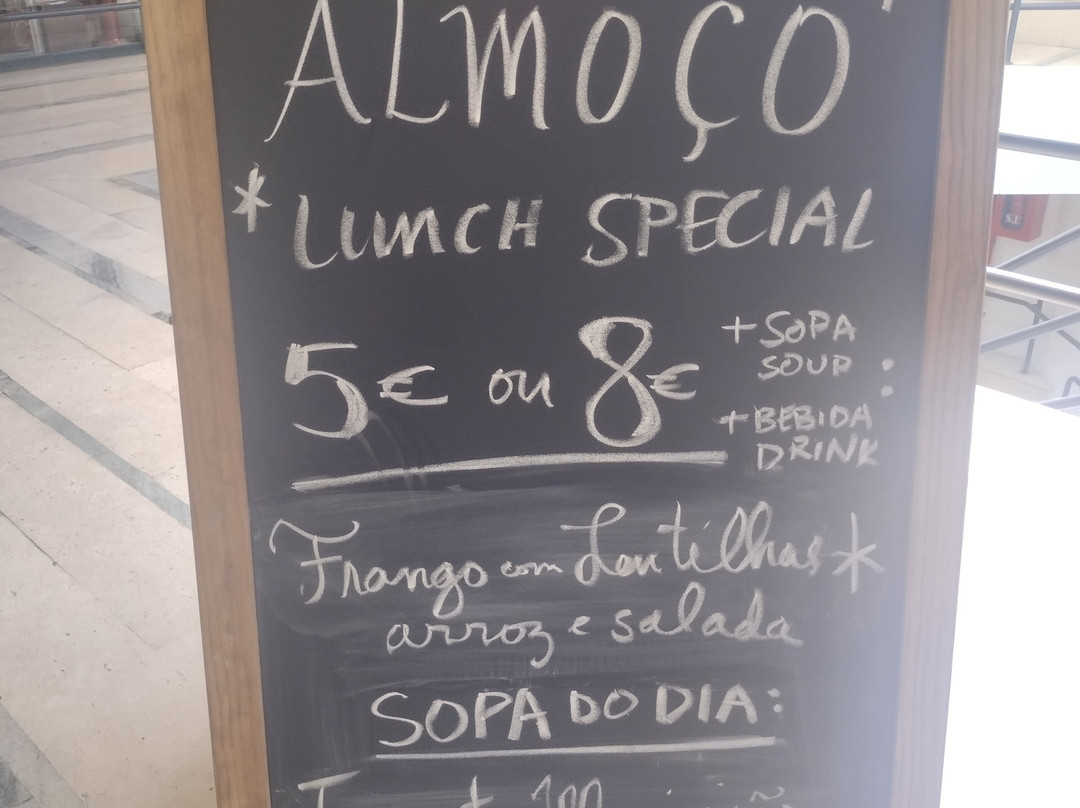 ALMOÇO
* LUNCH SPECIAL
5€ ou 8€
+ SOPA
SOUP :
+ BEBIDA
DRINK
Frango com Lentilhas *
arroz e salada
SOPA DO DIA:
S.I.